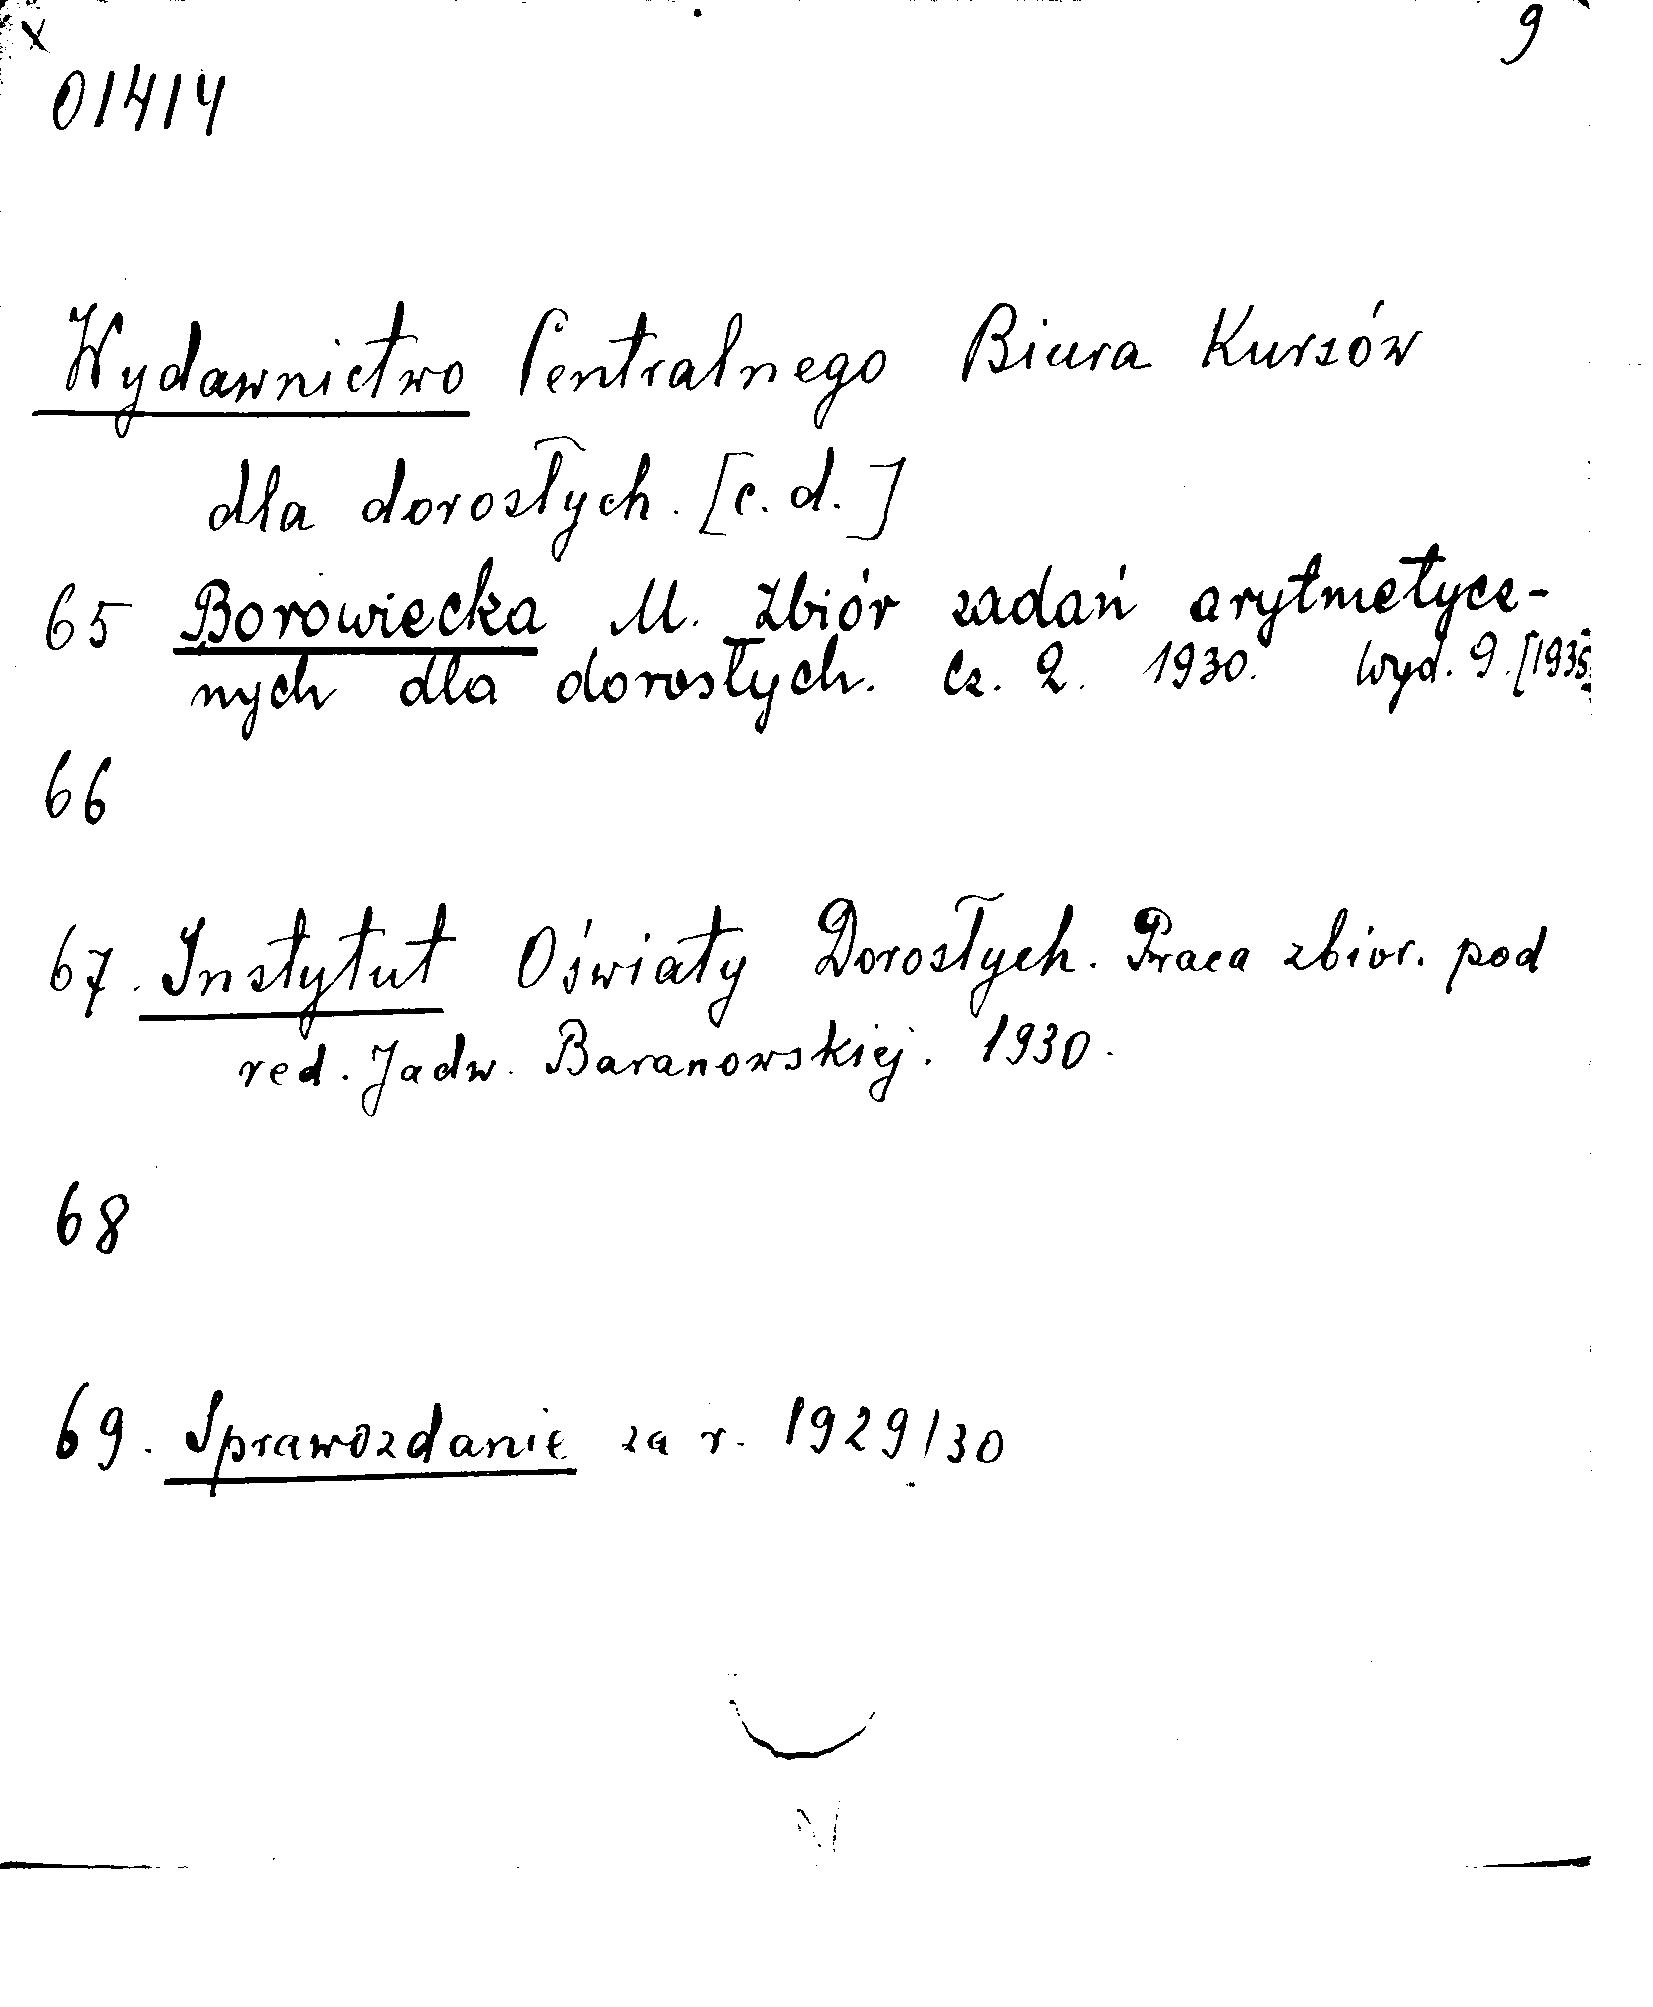 x
9
01414
Wydawnictwo Centralnego Biura Kursów
dla dorosłych. [c. d.]
65 Borowiecka M. Zbiór zadań arytmetycz-
nych dla dorosłych. Cz. 2. 1930. Wyd. 9. [1935
66
67. Instytut Oświaty Dorosłych. Praca zbior. pod
red. Jadw. Baranowskiej. 1930.
68
69. Sprawozdanie za r. 1929/30